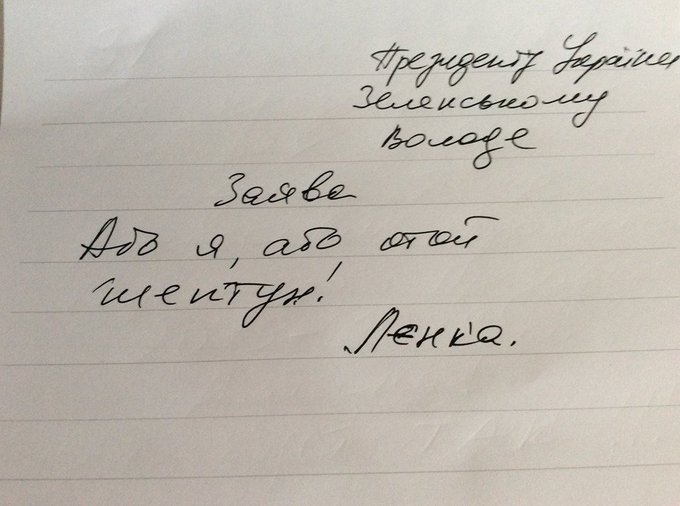 Президенту України
Зеленському
Володе
Заява
Або я, або отой
шептун!
Лєнка.